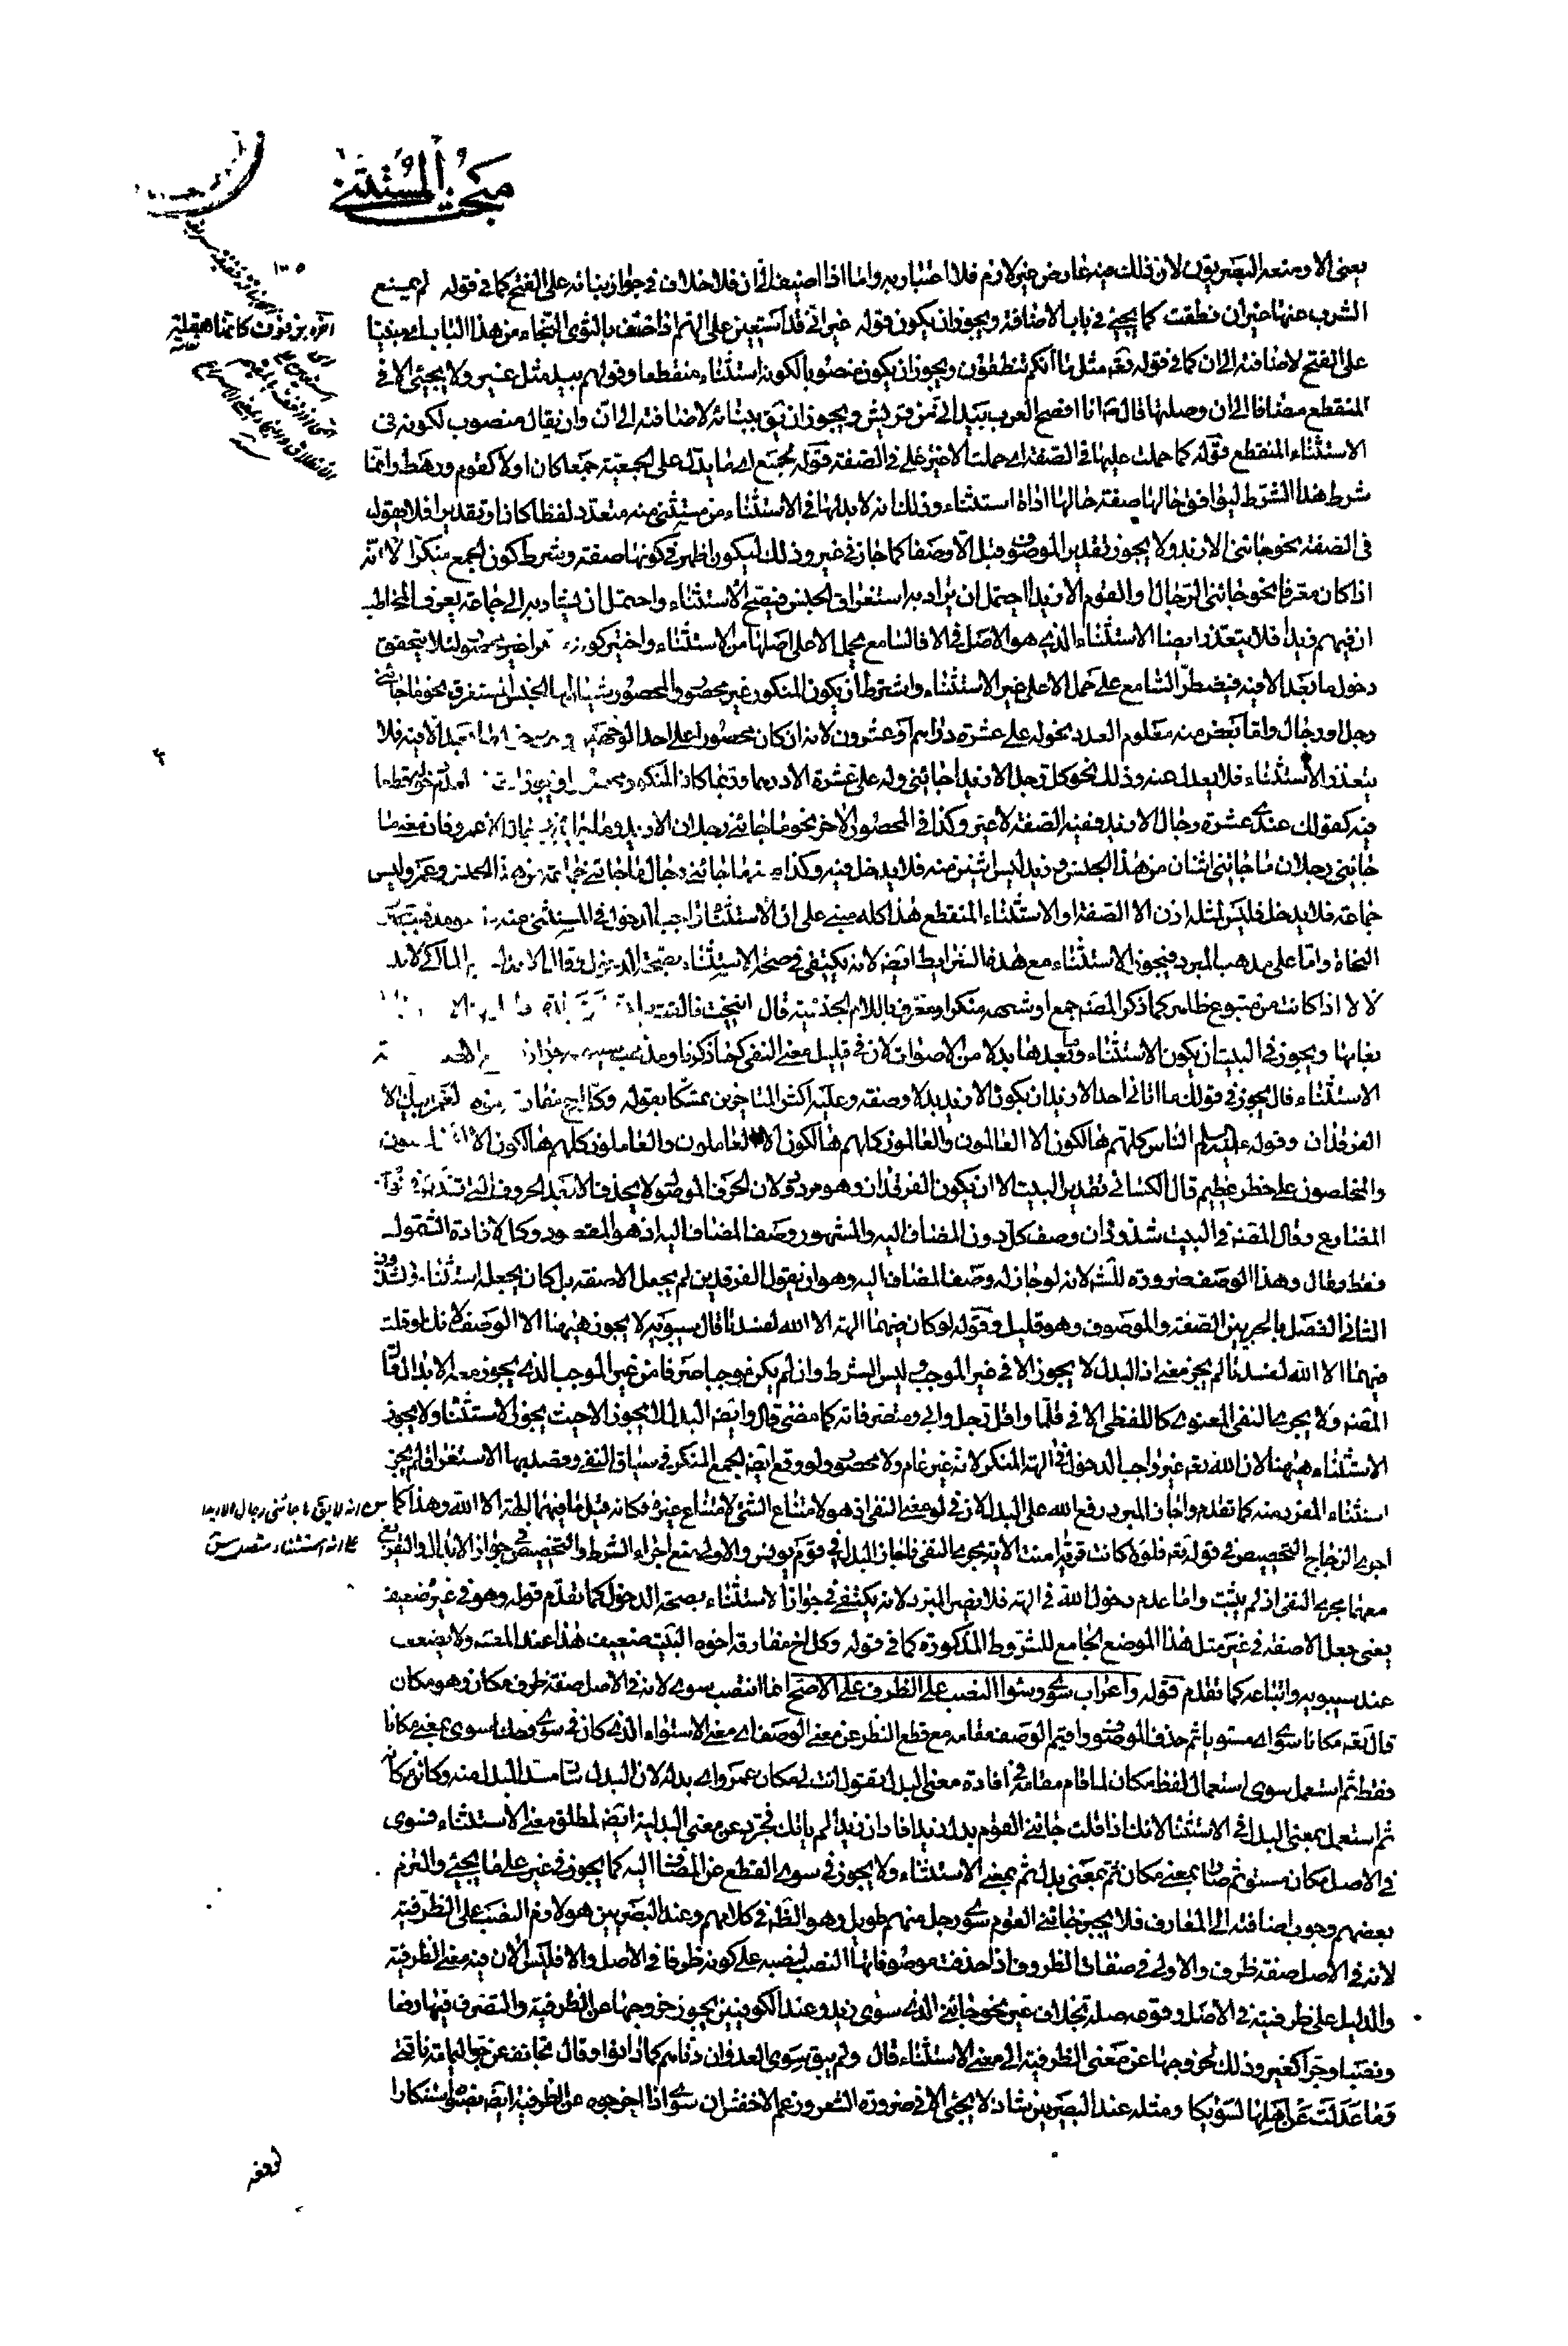 مبحث المستثنى
يعنى الا ومنعه البصريون لان ذلك فيه عارض غير لازم فلا اعتبار به واما اذا اضيف الى ان فلا خلاف فى جواز بنائه على الفتح كما فى قوله لم يمنع
الشرب منها غير ان نطقت كما يجيئ فى باب الاضافة ويجوز ان يكون قوله غير انى قد استعين على الهم اذا خف بالثوى النجاء من هذا الباب اى مبنيا
على الفتح لاضافته الى ان كما فى قوله تعه مثل ما انكم تنطقون ويجوز ان يكون منصوبا لكونه استثناء منقطعا وقولهم بيد مثل غير ولا يجيئ الا فى
المنقطع مضافا الى ان وصلتها قال انا افصح العرب بيد انى من قريش ويجوز ان يق ببنائه لاضافته الى ان وان يقال منصوب لكونه فى
الاستثناء المنقطع قوله كما حملت عليها فى الصفة اى حملت الا غير على فى الصفة قوله لجمع اى ما يدل على الجمعية جمعا كان او لا كقوم ورهط وانما
شرط هذا الشرط ليوافق حالها صفة حالها اداة استثناء وذلك انه لا بد لها فى الاستثناء من مستثنى منه متعدد لفظا كان او تقديرا فلا يقول
فى الصفة نحو جائنى الا زيد ولا يجوز تقدير الموصوف قبل الا وصفا كما جاز فى غير وذلك ليكون اظهر فى كونها صفة وشرط كون الجمع منكرا لانه
اذا كان معرفا نحو جائنى الرجال والقوم الا زيدا احتمل ان يراد به استغراق الجنس فيصح الاستثناء واحتمل ان يشار به الى جماعة يعرف المخاطب
ان فيهم زيدا فلا يتعذر ايضا الاستثناء الذى هو الاصل فى الا فالسامع يحمل الا على اصلها من الاستثناء واختير كونه غير محصور لئلا يتحقق
دخول ما بعد الا فيه فيضطر السامع على حمل الا على غير الاستثناء واشترط ان يكون المنكور غير محصور والمحصور شيئان اما الجنس المستغرق نحو ما جائنى
رجل او رجال واما بعض منه معلوم العدد نحو له على عشرة دراهم او عشرون لانه ان كان محصورا على احد الوجهين وجب دخول ما بعد الا فيه فلا
يتعذر الاستثناء فلا يعدل عنه وذلك نحو كل رجل الا زيدا جائنى وله على عشرة الا درهما وربما كان المنكر
فيه كقولك عندى عشرة رجال الا زيد ففيه الصفة لا غير وكذا فى المحصور الاخر نحو ما جائنى رجلان الا زيد فان معنى ما
جائنى رجلان ما جائنى اثنان من هذا الجنس وزيد ليس اثنين منه فلا يدخل فيه وكذا ما جائنى رجال اى ما جائنى جماعة من هذا الجنس وعمرو ليس
جماعة فلا يدخل فليس لمثله اذن الا الصفة او الاستثناء المنقطع هذا كله مبنى على ان الاستثناء واجب الدخول فى المستثنى منه
النحاة واما على مذهب المبرد فيجوز الاستثناء مع هذه الشرايط ايضه لانه يكتفى فى صحة الاستثناء بصحة الدخول وقال المالكى لابد
لا لا اذا كانت من متبوع ظاهر كما ذكر المصه جمع او شبهه منكر او معرف باللام الجنسية قال انيخت فالقت بلدة
بغامها ويجوز فى البيت ان يكون الاستثناء وما بعدها بدلا من الاصوات لان فى قليل معنى النفى كما ذكرنا ومذهب سيبويه جواز
الاستثناء قال يجوز فى قولك ما اتانى احد الا زيد ان يكون الا زيد بدلا وصفة وعليه اكثر المتاخرين تمسكا بقوله وكل اخ مفارقه اخوه لعمر ابيك الا
الفرقدان وقوله عليه السلم الناس كلهم هالكون الا العالمون والعالمون كلهم هالكون الا العاملون والعاملون كلهم هالكون الا المخلصون
والمخلصون على خطر عظيم قال الكسائى تقدير البيت الا ان يكون الفرقدان وهو مردود لان الحرف الموصول لا يحذف الا بعد الحروف التى تذكر فى نواصب
المضارع وقال المصه فى البيت شذوذان وصف كل دون المضاف اليه والمشهور وصف المضاف اليه اذ هو المقصود وكل لافادة الشمول
فقط وقال وهذا الوصف ضرورة للشاعر لانه لو جاز له وصف المضاف اليه وهو ان يقول الفرقدين لم يجعل الا صفة بل كان يجعله استثناء والشذوذ
الثانى الفصل بالخبر بين الصفة والموصوف وهو قليل وقوله لو كان فيهما الهة الا الله لفسدتا قال سيبويه لا يجوز ههنا الا الوصف لانك لو قلت
فيهما الا الله لفسدتا لم يجز معنى اذ البدل لا يجوز الا فى غير الموجب وليس الشرط وان لم يكن موجبا صرفا من غير الموجب الذى يجوز معه الابدال قال
المصه ولا يجرى النفى المعنوى كاللفظى الا فى قلما واقل رجل وابى ومتصرفاته كما مضى قال وايضه البدل لا يجوز الا حيث يجوز الاستثناء ولا يجوز
الاستثناء ههنا لان الله تعه غير واجب الدخول فى الهة المنكر لانه غير عام ولا محصور ولو وقع ايضه الجمع المنكر فى سياق النفى وقصد بها الاستغراق لم يجز
استثناء المفرد منه كما تقدم واجاز المبرد رفع الله على البدل لان فى لو معنى النفى اذ هو لامتناع الشئ لامتناع غيره فكانه قيل ما فيهما الهة الا الله وهذا كما
اجرى الزجاج التحضيض فى قوله تعه فلولا كانت قرية امنت الاية مجرى النفى فاجاز البدل فى قوم يونس والاولى منع اجراء الشرط والتحضيض فى جواز الابدال والتفريغ
معهما مجرى النفى اذ لم يثبت واما عدم دخول الله فى الهة فلا يضر المبرد لانه يكتفى فى جواز الاستثناء بصحة الدخول كما تقدم قوله وهو فى غيره ضعيف
يعنى جعل الا صفة فى غير مثل هذا الموضع الجامع للشروط المذكورة كما فى قوله وكل اخ مفارقه اخوه البيت ضعيف هذا عند المصه ولا يضعف
عند سيبويه واتباعه كما تقدم قوله واعراب سوى وسواء النصب على الظرف على الاصح انما انتصب سوى لانه فى الاصل صفة ظرف مكان وهو مكان
قال تعه مكانا سوى اى مستويا ثم حذف الموصوف واقيم الوصف مقامه مع قطع النظر عن معنى الوصف اى معنى الاستواء الذى كان فى سوى فصار سوى بمعنى مكانا
فقط ثم استعمل سوى استعمال لفظ مكان لما قام مقامه فى افادة معنى البدل تقول انت لى مكان عمرو اى بدله لان البدل ساد مسد المبدل منه وكائن مكانه
ثم استعمل بمعنى البدل فى الاستثناء لانك اذا قلت جائنى القوم بدل زيد افاد ان زيدا لم ياتك فجرد عن معنى البدلية ايضه لمطلق معنى الاستثناء فسوى
فى الاصل مكان مستو ثم صار بمعنى مكان ثم بمعنى بدل ثم بمعنى الاستثناء ولا يجوز فى سوى القطع عن المضاف اليه كما يجوز فى غير على ما يجيئ والتزم
بعضهم وجوب اضافته الى المعارف فلا يجيز جائنى القوم سوى رجل منهم طويل وهو الظه فى كلامهم وعند البصريين هو لازم النصب على الظرفية
لانه فى الاصل صفة ظرف والاولى فى صفات الظروف اذا حذفت موصوفاتها النصب فنصبه على كونه ظرفا فى الاصل والا فليس الان فيه معنى الظرفية
والدليل على ظرفيته فى الاصل وقوعه صلة بخلاف غير نحو جائنى الذى سوى زيد وعند الكوفيين يجوز خروجها عن الظرفية والتصرف فيها رفعا
ونصبا وجرا كغير وذلك لخروجها عن معنى الظرفية الى معنى الاستثناء قال ولم يبق سوى العدوان دناهم كما دانوا وقال تجانف عن جو اليمامة ناقتى
وما عدلت عن اهلها لسوائكا ومثله عند البصريين شاذ لا يجئ الا فى ضرورة الشعر وزعم الاخفش ان سوى اذا اخرجوه عن الظرفية ايضه نصبوه استنكارا